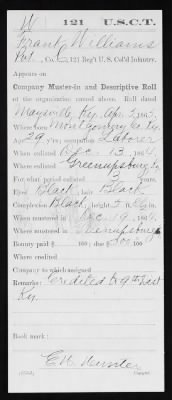 W 121 U.S.C.T.
Frank Williams
Pvt., Co. , 121 Reg't U. S. Col'd Infantry.
Appears on
Company Muster-in and Descriptive Roll
of the organization named above. Roll dated
Maysville, Ky. Apr. 2, 1865.
Where born Montgomery Co. Ky.
Age 29 y'rs; occupation Laborer
When enlisted Dec. 13, 1864.
Where enlisted Greenupsburg, Ky.
For what period enlisted 3 years.
Eyes Black; hair Black
Complexion Black; height 5 ft. 6 in.
When mustered in Dec. 19, 1864.
Where mustered in Greenupsburg
Bounty paid $ 100; due $ 300 100
Where credited
Company to which assigned
Remarks: Credited to 9th Dist
Ky.
Book mark:
(Copyist.)